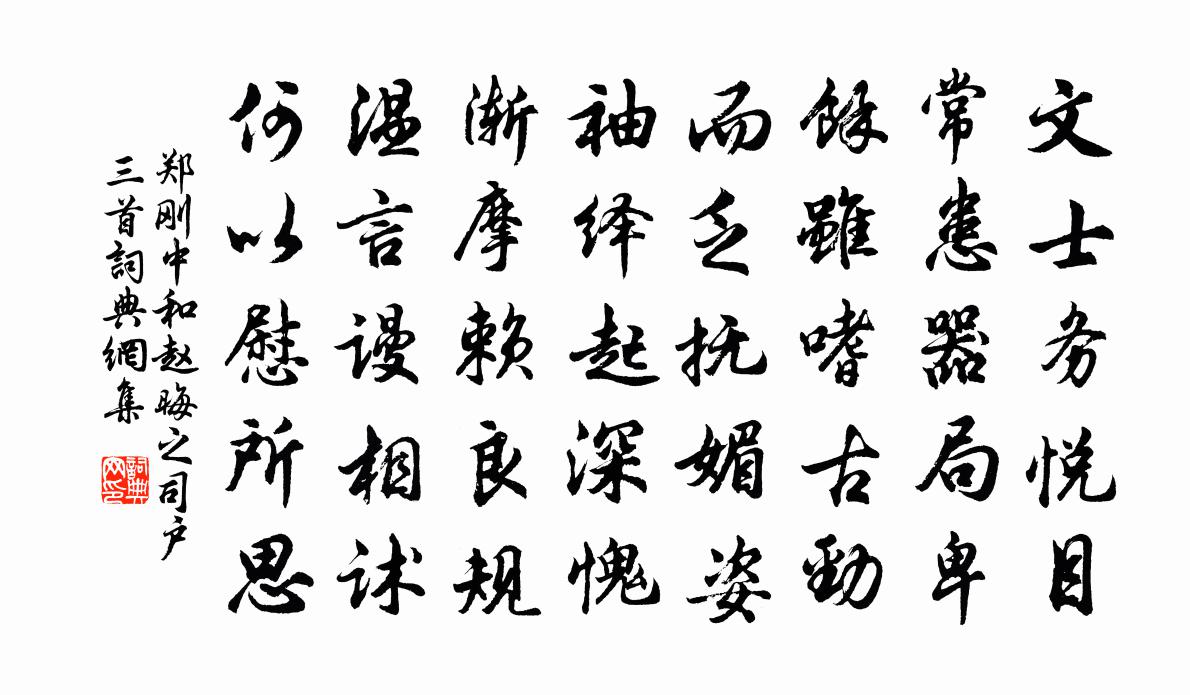 文士务悦目
常患器局卑
馀虽嗜古劲
而乏抚媚姿
袖绎起深愧
渐摩赖良规
温言谩相詸
何以慰所思
郑刚中和赵晦之司户
三首詞典網集
詞典